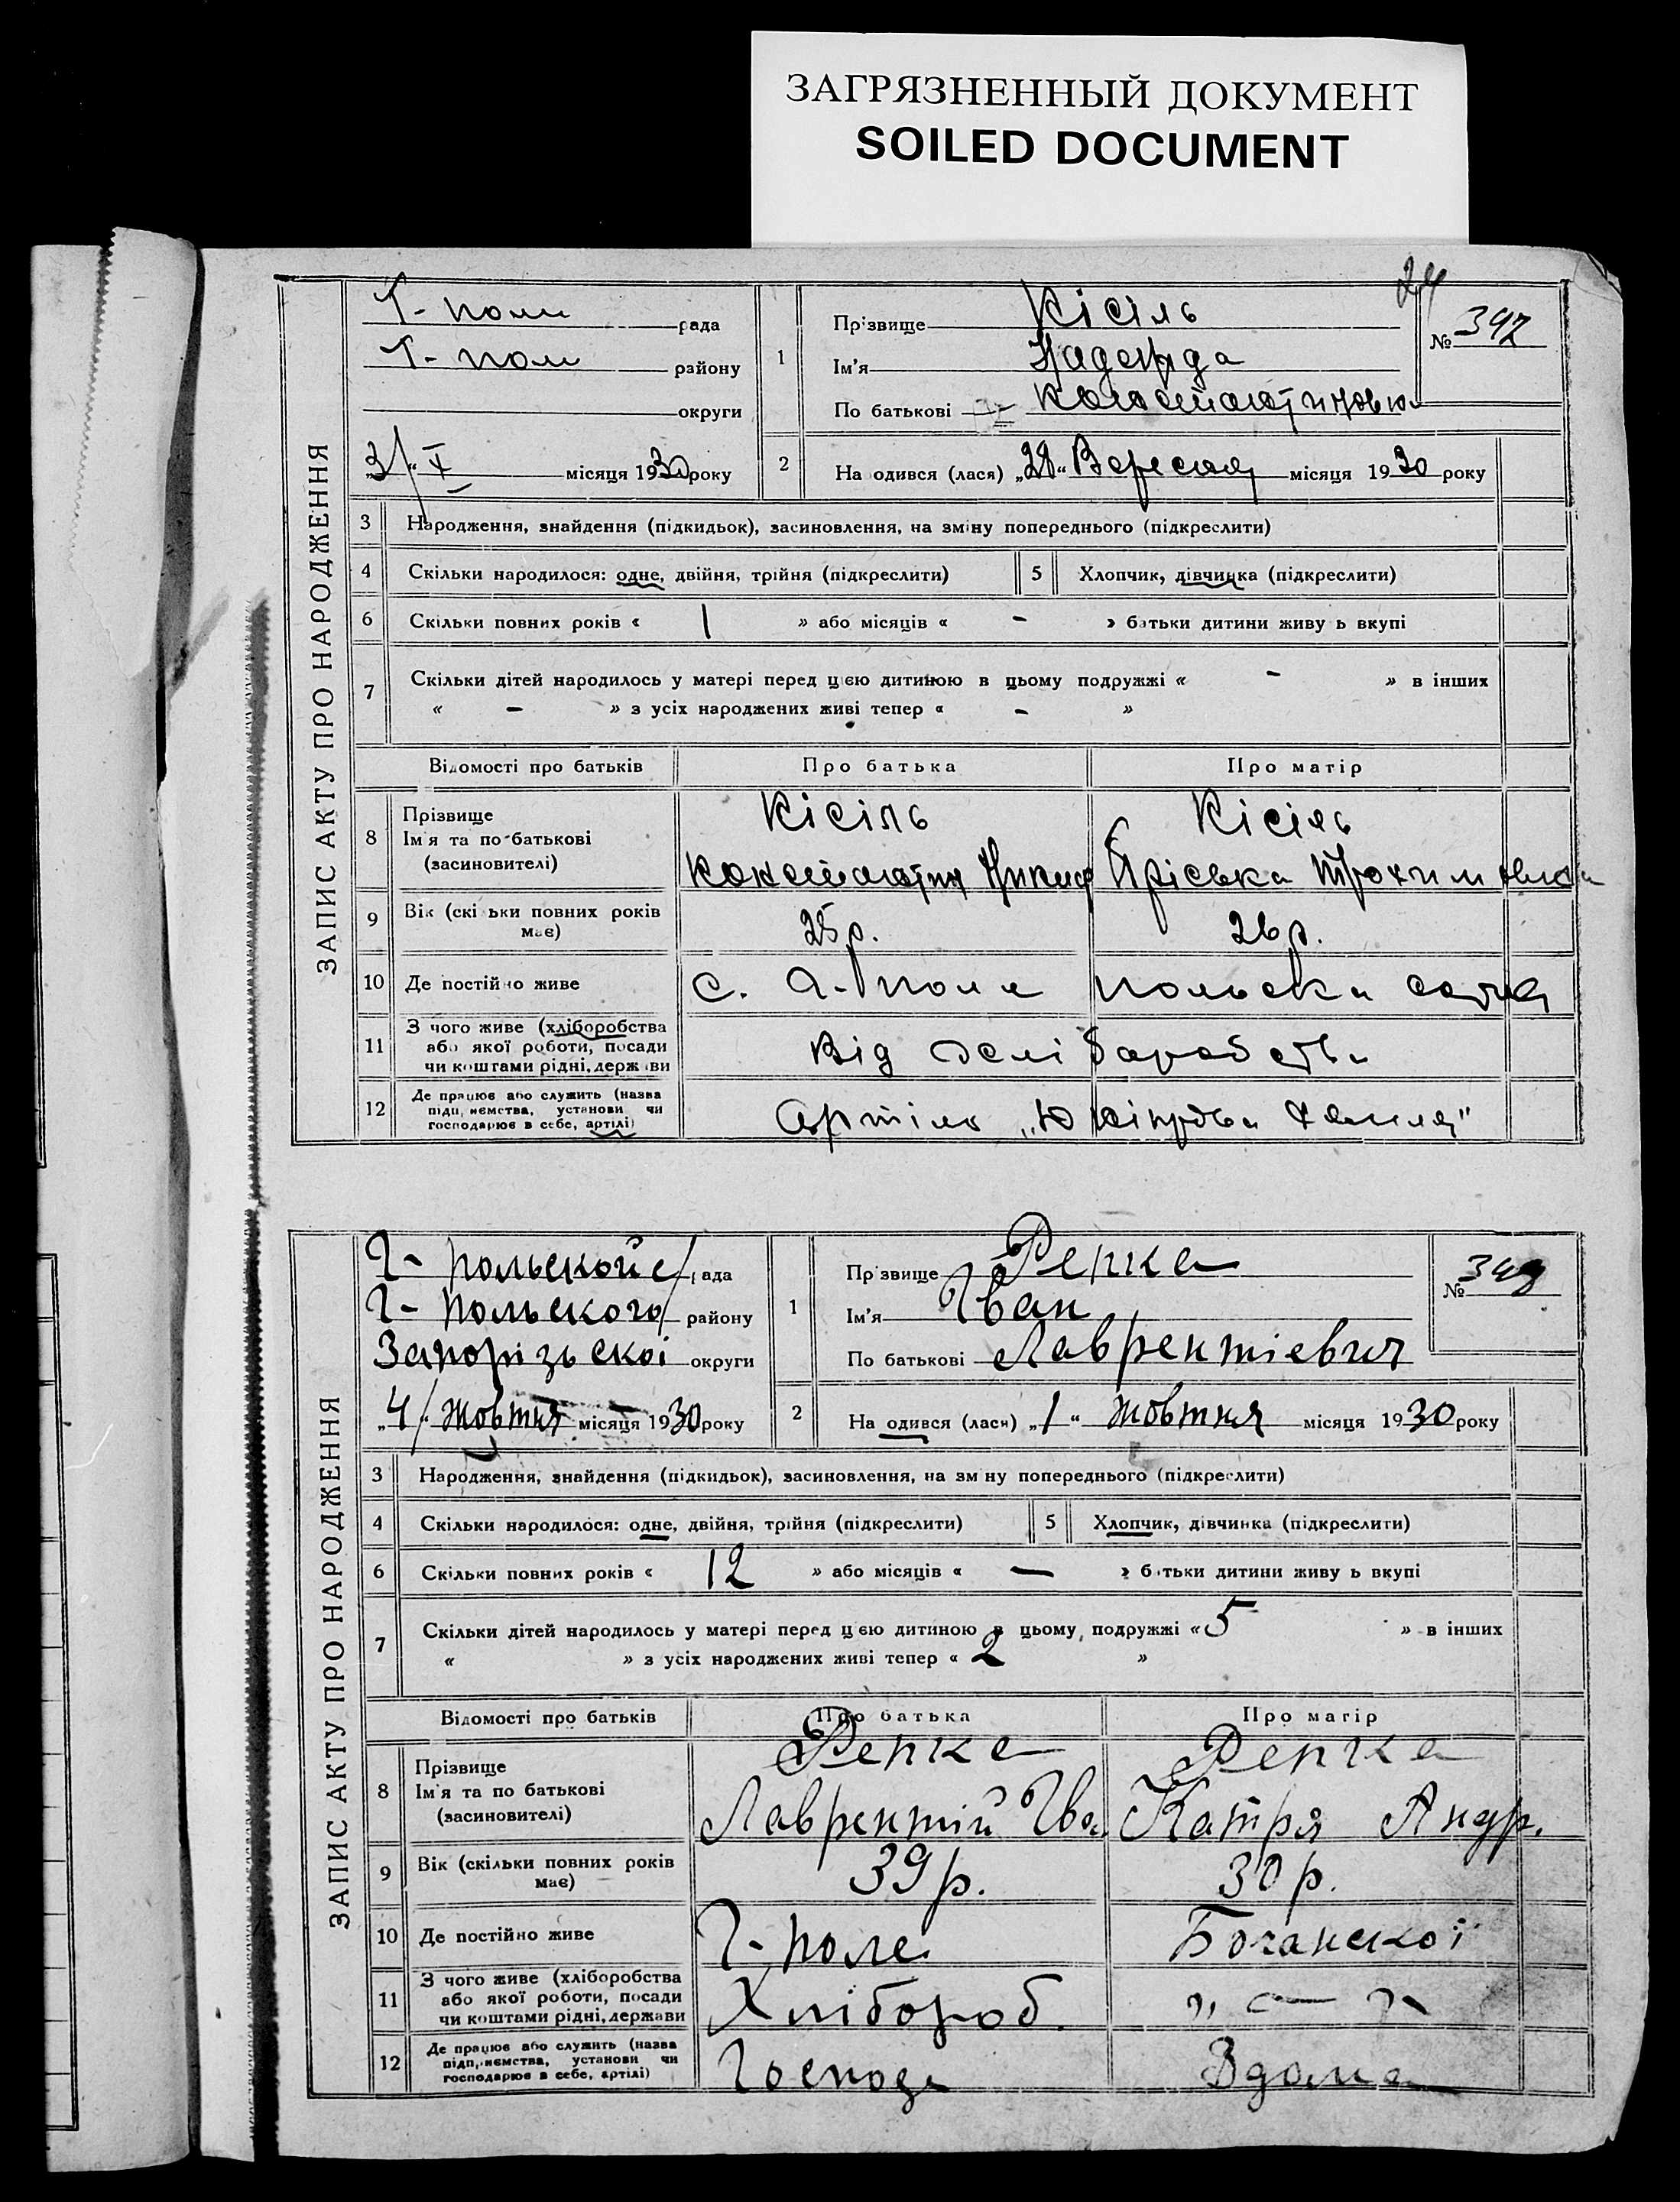 ЗАГРЯЗНЕННЫЙ ДОКУМЕНТ
SOILED DOCUMENT
24
ЗАПИС АКТУ ПРО НАРОДЖЕННЯ
Г- поли рада
Г- поли району
округи
„3/“ X місяця 1930 року
1
Прізвище Кісіль
Ім'я Надежда
По батькові Константиновна
№ 347
2
На одився (лася) „28“ Вересня місяця 1930 року
3 Народження, знайдення (підкидьок), засиновлення, на зміну попереднього (підкреслити)
4 Скільки народилося: одне, двійня, трійня (підкреслити) 5 Хлопчик, дівчинка (підкреслити)
6 Скільки повних років « 1 » або місяців « - » батьки дитини живу ь вкупі
7 Скільки дітей народилось у матері перед цією дитиною в цьому подружжі « - » в інших
« - » з усіх народжених живі тепер « - »
Відомості про батьків Про батька Про матір
8 Прізвище Кісіль Кісіль
Ім'я та по батькові
(засновителі) Константин Никиф Пріська Трохимовна
9 Вік (скі ьки повних років має) 25 р. 26 р.
10 Де постійно живе с. Г-поля польска сотня
11 З чого живе (хліборобства
або якої роботи, посади
чи коштами рідні, держави Від хліборобства
12 Де працює або служить (назва
підп, иємства, установи чи
господарює в себе, артілі) Артіль
ЗАПИС АКТУ ПРО НАРОДЖЕННЯ
Г- польской с/ рада
Г- польского/ району
Запорізьскоі округи
„4/“ Жовтня місяця 1930 року
1
Пр звище Репка
Ім'я Іван
По батькові Лаврентіевич
№ 348
2
На одився (лася) „1“ жовтня місяця 1930 року
3 Народження, знайдення (підкидьок), засиновлення, на зм ну попереднього (підкреслити)
4 Скільки народилося: одне, двійня, трійня (підкреслити) 5 Хлопчик, дівчинка (підкреслити)
6 Скільки повних років « 12 » або місяців « — » б тьки дитини живу ь вкупі
7 Скільки дітей народилось у матері перед цією дитиною в цьому подружжі « 5 » в інших
« » з усіх народжених живі тепер « 2 »
Відомості про батьків Про батька Про матір
8 Прізвище Репка Репка
Ім'я та по батькові
(засиновителі) Лаврентій Іва. Катря Андр.
9 Вік (скільки повних років має) 39 р. 30 р.
10 Де постійно живе Г-поле Боганскоі
11 З чого живе (хліборобства
або якої роботи, посади
чи коштами рідні, держави Хлібороб „ — „
12 Де працює або служить (назва
підп, иємства, установи чи
господарює в себе, артілі) Господ Вдома